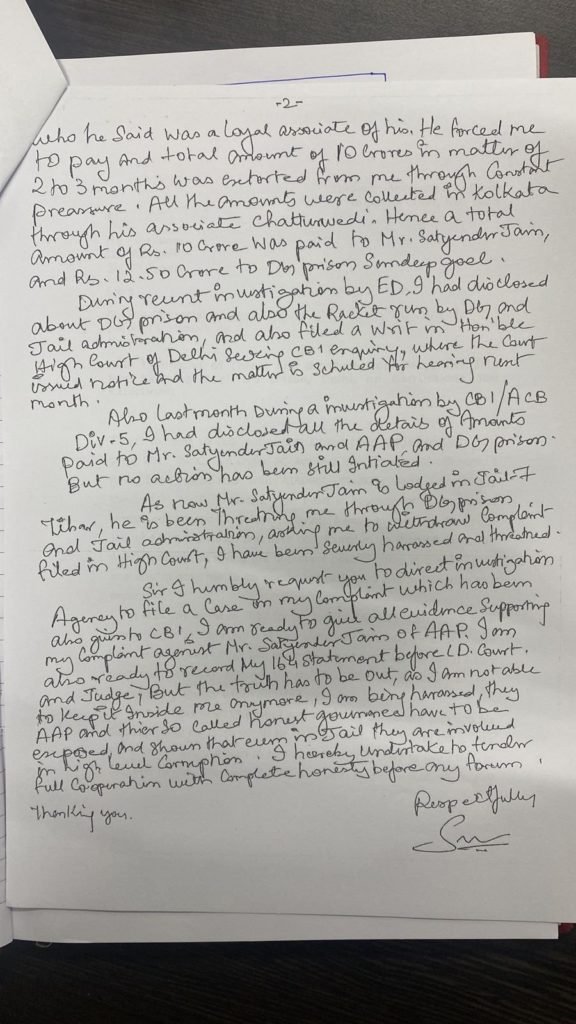 -2-
who he said was a loyal associate of his. He forced me
to pay and total amount of 10 crores in matter of
2 to 3 months was extorted from me through constant
preassure. All the amounts were collected in Kolkata
through his associate chaturwedi. Hence a total
amount of Rs. 10 Crore was paid to Mr. Satyender Jain,
and Rs. 12.50 Crore to DG prison Sundeep goel.
During recent investigation by ED, I had disclosed
about DG prison and also the Racket run by DG and
Jail administration, and also filed a writ in Hon'ble
High Court of Delhi seeking CBI enquiry, where the Court
issued notice and the matter is schuled for hearing next
month.
Also last month During a investigation by CBI/ACB
Div-5, I had disclosed all the details of Amounts
paid to Mr. Satyender Jain and AAP, and DG prison.
But no action has been still Intiated.
As now Mr. Satyender Jain is lodged in Jail-7
Tihar, he is been Thretning me through DG prison
and Jail administration, asking me to withdraw Complaint
filed in High Court, I have been severly harassed and threatned.
Sir I humbly request you to direct investigation
Agency to file a Case on my complaint which has been
also given to CBI, I am ready to give all evidence supporting
my complaint against Mr. Satyender Jain of AAP. I am
also ready to record My 164 statement before LD. Court.
and Judge, But the truth has to be out, as I am not able
to keep it Inside me anymore, I am being harassed, they
AAP and thier so called honest governance have to be
exposed, and shown that even in Jail they are involved
in high level Corruption. I hereby undertake to tender
full Co-operation with complete honesty before any forum.
Thanking you.
Respectfully